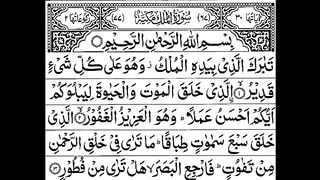 اٰيَاتُهَا ٣٠ (٦٧) سُوْرَةُ الْمُلْكِ مَكِّيَّةٌ (٧٧) رُكُوْعَاتُهَا ٢
بِسْمِ اللّٰهِ الرَّحْمٰنِ الرَّحِيْمِ
تَبٰرَكَ الَّذِيْ بِيَدِهِ الْمُلْكُ وَهُوَ عَلٰى كُلِّ شَيْءٍ
قَدِيْرُۙ ۝١ الَّذِيْ خَلَقَ الْمَوْتَ وَالْحَيٰوةَ لِيَبْلُوَكُمْ
اَيُّكُمْ اَحْسَنُ عَمَلًاؕ وَهُوَ الْعَزِيْزُ الْغَفُوْرُۙ ۝٢ الَّذِيْ
خَلَقَ سَبْعَ سَمٰوٰتٍ طِبَاقًاؕ مَا تَرٰى فِيْ خَلْقِ الرَّحْمٰنِ
مِنْ تَفٰوُتٍؕ فَارْجِعِ الْبَصَرَۙ هَلْ تَرٰى مِنْ فُطُوْرٍ ۝٣